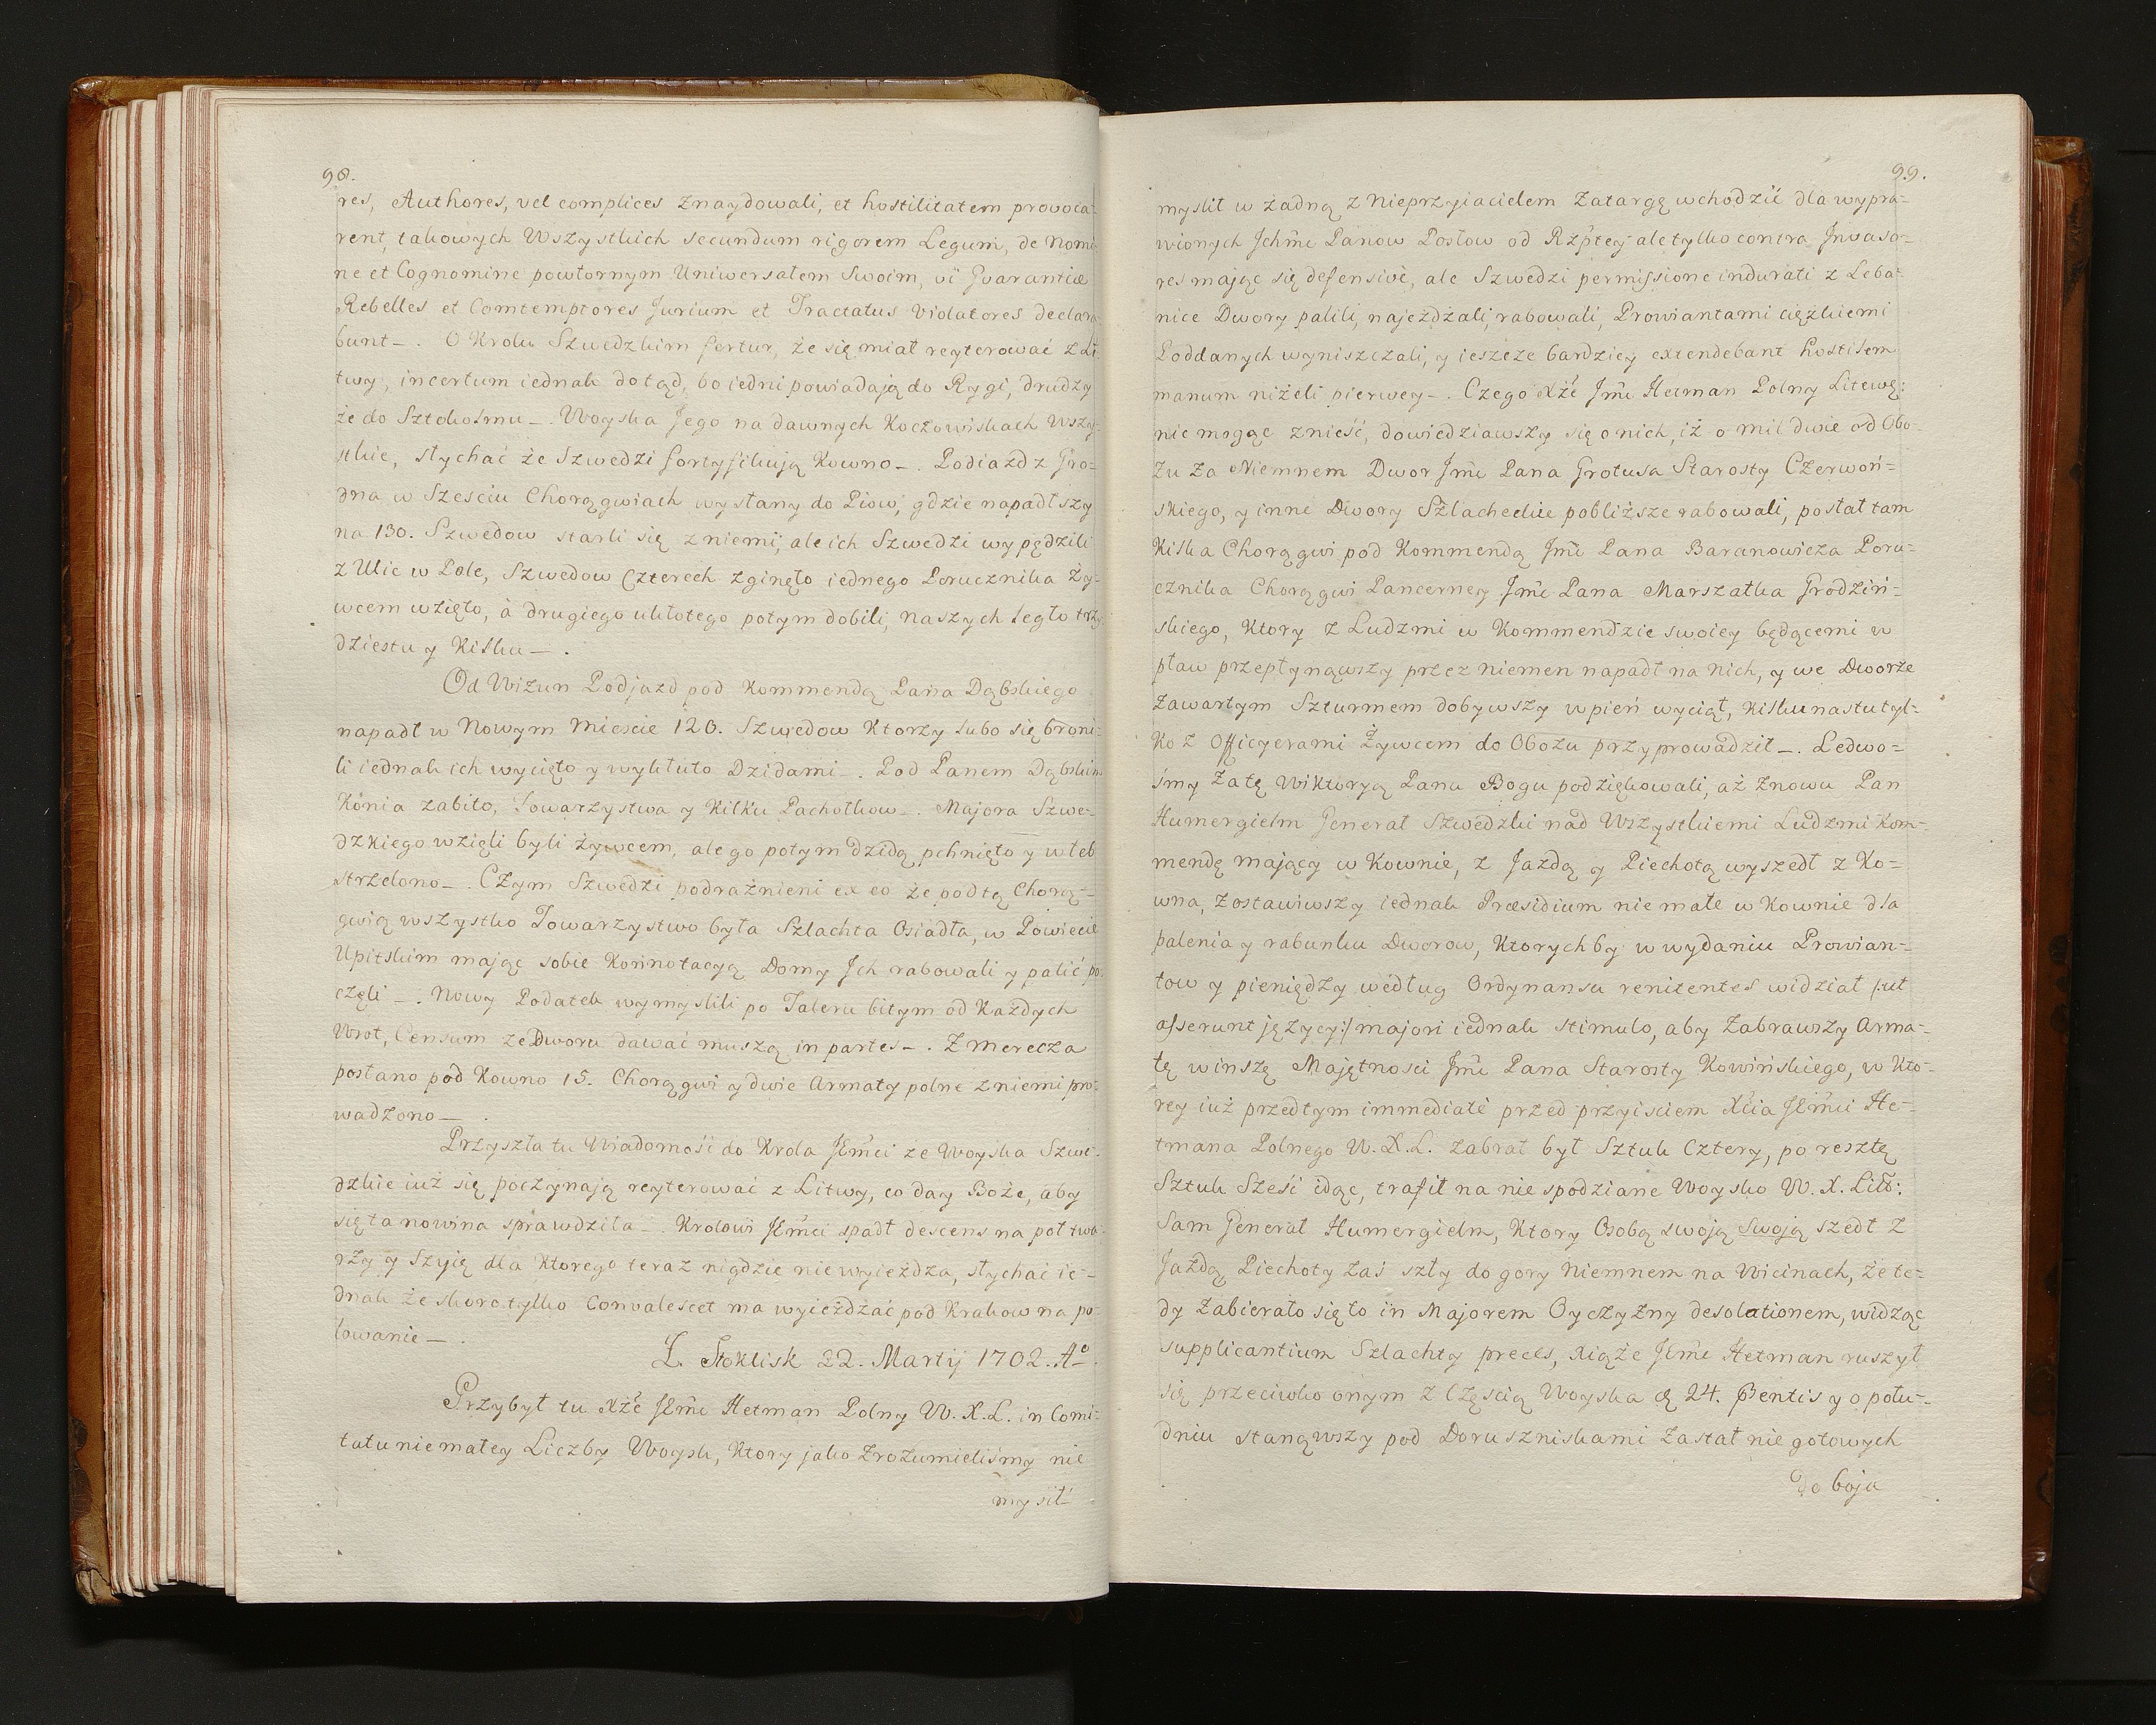 98.
res, Authores, vel complices Znaydowali, et hostilitatem provoca-
rent, takowych Wszystkich secundum rigorem Legum, de Nomi-
ne et Cognomine powtornym Uniwersałem Swoim, vi Gvarantiæ
Rebelles et Comtemptores Jurium et Tractatus violatores declara-
bunt _. O Krolu Szwedzkim fertur, że się miał reyterować z Li-
twy, incertum iednak dotąd, bo iedni powiadaią do Rygi, drudzy
że do Sztokolmu _. Woyska Jego na dawnych Koczowiskach Wszy-
stkie, słychać że Szwedzi fortyfikują Kowno _. Podiazd z Gro-
dna w Szesciu Chorągwiach wysłany do Piow, gdzie napadłszy
na 130. Szwedow starli się z niemi, ale ich Szwedzi wypędzili
z Ulic w Pole, Szwedow Czterech zginęło iednego Porucznika ży-
wcem wzięto, à drugiego ukłotego potym dobili, naszych legło trzy
dziestu y Kilku _.
Od Wizun Podjazd pod Kommendą Pana Dąbskiego
napadł w Nowym Miescie 120. Szwedow Ktorzy lubo się broni-
li iednak ich wycięto y wykłuto Dzidami _. Pod Panem Dąbskim
Konia zabito, Towarzystwa y Kilku Pachołkow _. Majora Szwe-
dzkiego wzięli byli żywcem, ale go potym dzidą pchnięto y w łeb
strzelono _. Czym Szwedzi podrażnieni ex eo że pod tą Chorą-
gwią wszystko Towarzystwo była Szlachta Osiadła, w Powiecie
Upitskim maiąc sobie Konnotacyą Domy Jch rabowali y palić po-
częli _. Nowy Podatek wymyslili po Taleru bitym od Każdych
Wrot, Censum ze Dworu dawać muszą in partes _. Z Merecza
posłano pod Kowno 15. Chorągwi y dwie Armaty polne z niemi pro-
wadzono _.
Przyszła tu Wiadomość do Krola JEmci ze Woyska Szwe-
dzkie iuż się poczynają reyterować z Litwy, co day Boże, aby
się ta nowina sprawdziła _. Krolowi JEmci spadł descens na poł twa-
rzy y Szyię dla Ktorego teraz nigdzie nie wyieżdza, słychać ie-
dnak że skoro tylko Convalescet ma wyieżdżać pod Krakow na po-
lowanie _.
Z. Stoklisk 22. Martij 1702. Aº.
Przybył tu Xże JEmć Hetman Polny W. X. L. in Comi-
tatu niemałey Liczby Woysk, Ktory jako Zrozumieliśmy nie
myslił
99.
myslił w żadną z Nieprzyiacielem Zatargę wchodzić dla wypra-
wionych Jchmć Panow Posłow od Rzptey ale tylko contra Jnvaso-
res mając się defensivè, ale Szwedzi permissione indurati z Leba-
nice Dwory palili, najeżdżali, rabowali, Prowiantami ciężkiemi
Poddanych wyniszczali, y ieszcze bardziey extendebant hostilem
manum niżeli pierwey _. Czego Xże Jmć Hetman Polny Litewę:
nie mogąc znieść, dowiedziawszy się o nich, iż o mil dwie od Obo-
zu za Niemnem Dwor Jmć Pana Grotusa Starosty Czerwoń-
skiego, y inne Dwory Szlacheckie pobliższe rabowali, posłał tam
Kilka Chorągwi pod Kommendą Jmć Pana Baranowicza Poru-
cznika Chorągwi Pancerney Jmć Pana Marszałka Grodziń-
skiego, Ktory z Ludzmi w Kommendzie swoiey będącemi w
pław przepłynąwszy przez niemen napadł na nich, y we Dworze
Zawartym Szturmem dobywszy w pień wyciął, Kilkunastu tyl-
ko z Officyerami żywcem do Obozu przyprowadził _. Ledwo-
smy Za tę Wiktoryą Panu Bogu podziękowali, aż Znowu Pan
Humergielm Generał Szwedzki nad Wszystkiemi Ludzmi Kom-
mendę mający w Kownie, z Jazdą y Piechotą wyszedł z Ko-
wna, Zostawiwszy iednak Præsidium nie małe w Kownie dla
palenia y rabunku Dworow, Ktorych by w wydaniu Prowian-
tow y pieniędzy według Ordynansu renitentes widział /:ut
asserunt języcy:/ majori iednak stimulo, aby Zabrawszy Arma-
tę w inszę Majętnosci Jmć Pana Starosty Kowińskiego, w Kto-
rey iuż przedtym immediatè przed przyisciem Xcia JEmci He-
tmana Polnego W. X. L. zabrał był Sztuk Cztery, po resztę
Sztuk Sześć idąc, trafił na nie spodziane Woysko W. X. Litt:
Sam Generał Humergielm, Ktory Osobą swoją swoją szedł z
Jazdą, Piechoty zaś szły do gory Niemnem na Wicinach, że te-
dy Zabierało się to in Majorem Oyczyzny desolationem, widząc
supplicantium Szlachty preces, Xiąże JEmć Hetman ruszył
się przeciwko onym z Częscią Woyska d. 24. præsentis y o połu-
dniu stanąwszy pod Doruszniskami Zastał nie gotowych
do boju